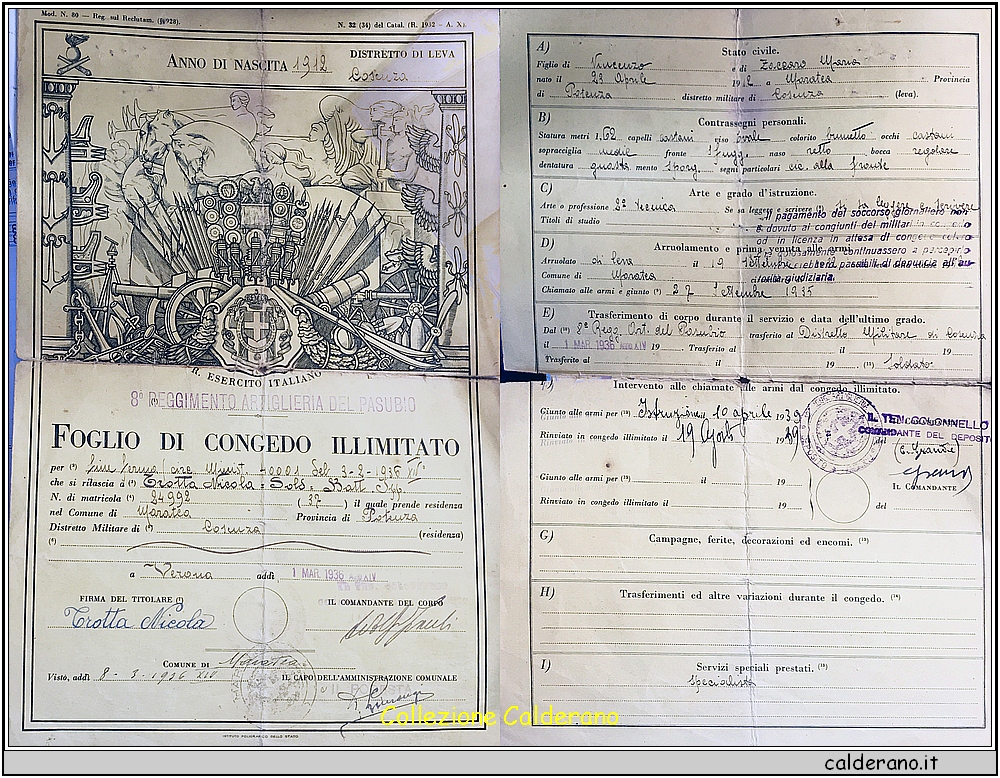 Mod. N. 80 — Reg. sul Reclutam. (§928).
N. 32 (34) del Catal. (R. 1932 - A. X).
ANNO DI NASCITA 1912
DISTRETTO DI LEVA
Cosenza
R. ESERCITO ITALIANO
8° REGGIMENTO ARTIGLIERIA DEL PASUBIO
FOGLIO DI CONGEDO ILLIMITATO
per (²) fine ferma circ. Minist. 40001 del 3-2-1936 XIV°
che si rilascia a (³) Trotta Nicola = Sold.
N. di matricola (⁴) 24992 (37) il quale prende residenza
nel Comune di Maratea Provincia di Potenza
Distretto Militare di (⁵) Cosenza (residenza)
(⁶)
a Verona addì 1 MAR. 1936 ANNO XIV
FIRMA DEL TITOLARE (⁷)
IL COMANDANTE DEL CORPO
Trotta Nicola
COMUNE DI Maratea
Visto, addì 8-3-1936 XIV
IL CAPO DELL'AMMINISTRAZIONE COMUNALE
ISTITUTO POLIGRAFICO DELLO STATO
A) Stato civile.
Figlio di Vincenzo e di Zaccaro Maria
nato il 23 Aprile 1912 a Maratea Provincia
di Potenza distretto militare di Cosenza (leva).
B) Contrassegni personali.
Statura metri 1,62 capelli castani viso ovale colorito brunetto occhi castani
sopracciglia medie fronte sfugg. naso retto bocca regolare
dentatura guasta mento sporg. segni particolari cic. alla fronte
C) Arte e grado d'istruzione.
Arte o professione 2ª tecnica Se sa leggere e scrivere (⁸) si sa leggere e scrivere
Titoli di studio
Il pagamento del soccorso giornaliero non
è dovuto ai congiunti dei militari in congedo
od in licenza in attesa di congedo
D) Arruolamento e prima venuta alle armi.
continuassero a percepirlo
Arruolato di leva il 19 Settembre
sarebbero passibili di denuncia all'au-
Comune di Maratea
torità giudiziaria.
Chiamato alle armi e giunto (⁹) 27 Settembre 1935
E) Trasferimento di corpo durante il servizio e data dell'ultimo grado.
Dal (¹⁰) 8° Regg. Art. del Pasubio trasferito al Distretto Militare di Cosenza
il 1 MAR. 1936 ANNO XIV 19 Trasferito al il 19
Trasferito al il 19 (¹¹) Soldato
F) Intervento alle chiamate alle armi dal congedo illimitato.
Giunto alle armi per (¹²) Istruzione, 10 aprile 1939
Rinviato in congedo illimitato il 19 Agosto 1939
IL TEN. COLONNELLO
COMANDANTE DEL DEPOSITO
(E. Grande)
Giunto alle armi per (¹²) il 19
IL COMANDANTE
Rinviato in congedo illimitato il 19 del
G) Campagne, ferite, decorazioni ed encomi. (¹³)
H) Trasferimenti ed altre variazioni durante il congedo. (¹⁴)
I) Servizi speciali prestati. (¹⁵)
Specialista
Collezione Calderano
calderano.it